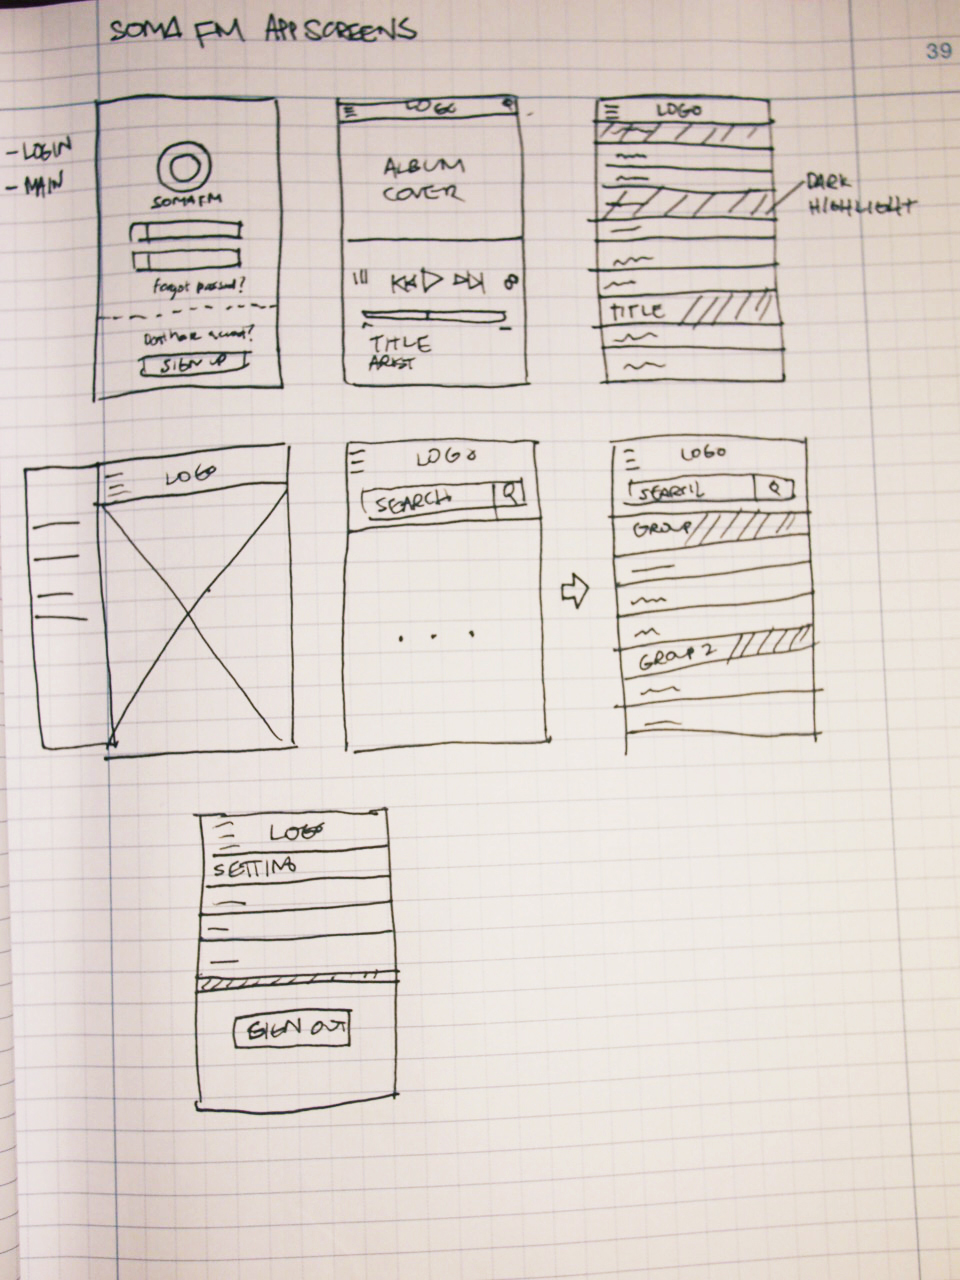 SOMA FM APP SCREENS
39
- LOGIN
- MAIN
SOMA FM
Forgot passwd?
Dont have account?
SIGN UP
LOGO
ALBUM
COVER
TITLE
ARTIST
LOGO
DARK
HIGHLIGHT
TITLE
LOGO
LOGO
SEARCH
LOGO
SEARCH
GROUP
GROUP 2
LOGO
SETTING
SIGN OUT